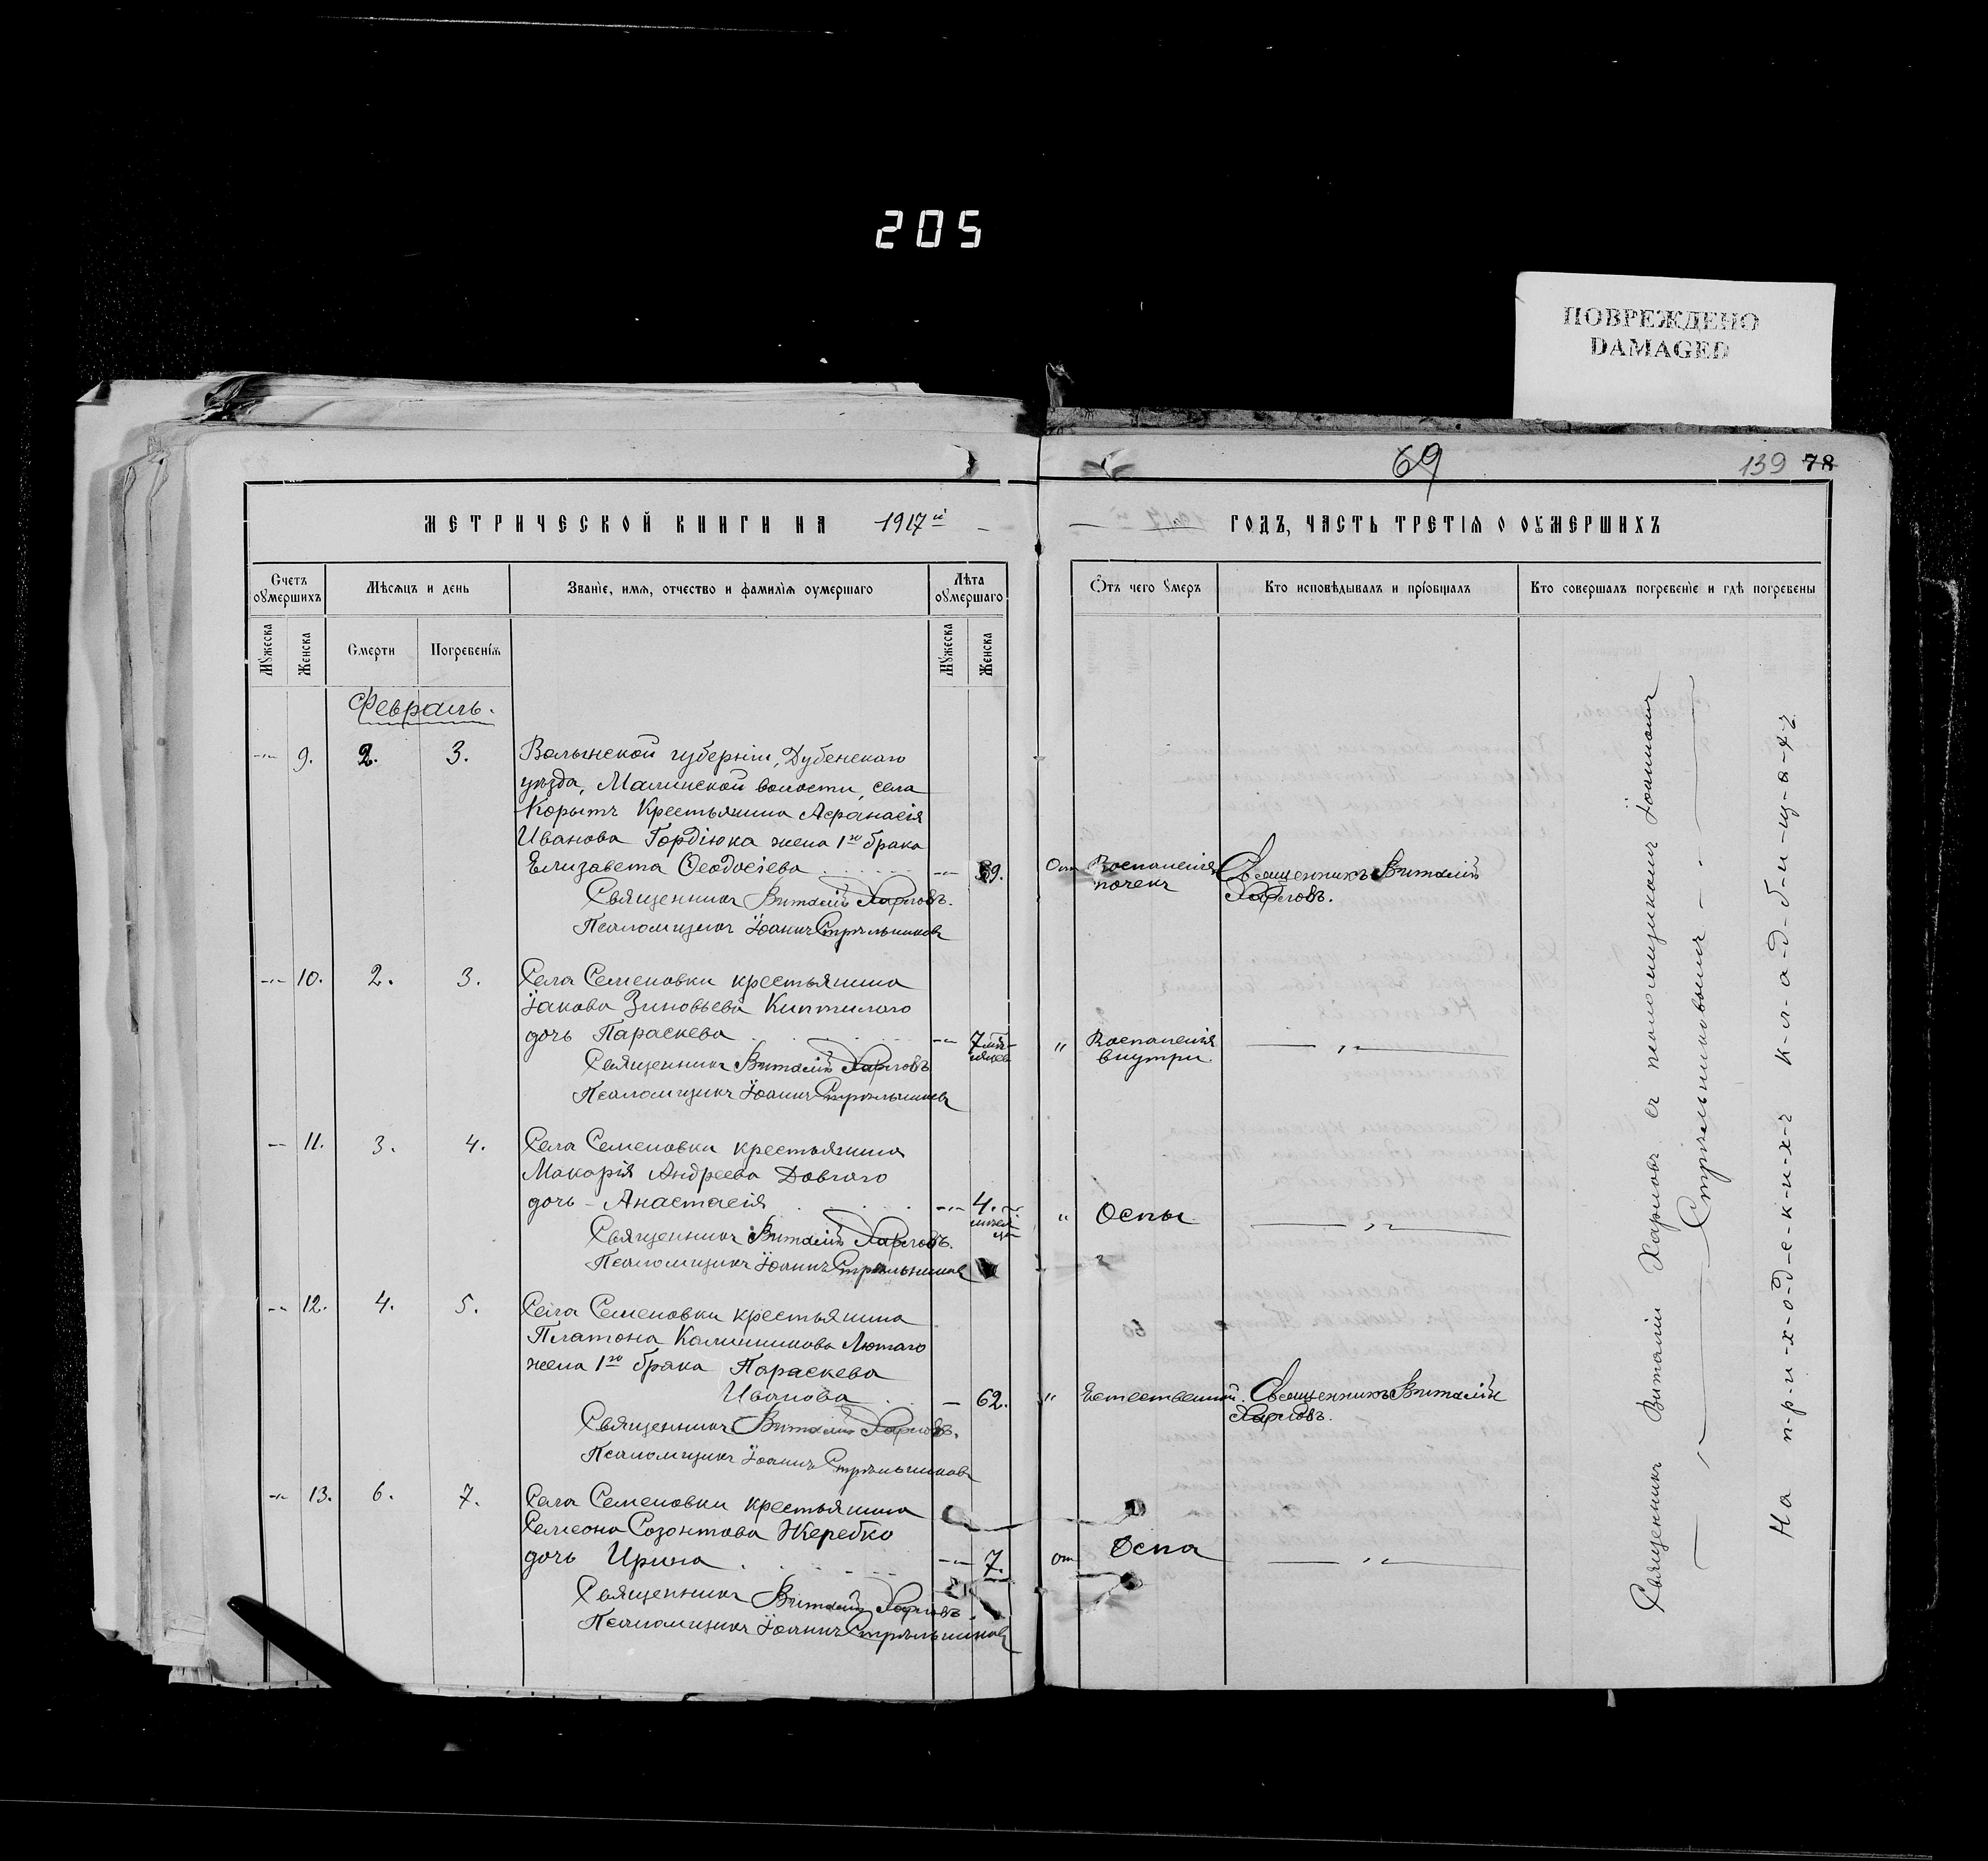 205
ПОВРЕЖДЕНО
DAMAGED
69
139 78
МЕТРИЧЕСКОЙ КНИГИ НА 1917й
ГОДЪ, ЧАСТЬ ТРЕТІѦ О ОУМЕРШИХЪ
Счетъ оумершихъ
Мѣсѧцъ и день
Званіе, имѧ, отчество и фамиліѧ оумершаго
Лѣта оумершаго
Ѿтъ чего ꙋмеръ
Кто исповѣдывалъ и пріобщалъ
Кто совершалъ погребеніе и гдѣ погребены
Мꙋжеска
Женска
Смерти
Погребеніѧ
Мꙋжеска
Женска
Февраль.
9. 2. 3. Волынской губерніи, Дубенскаго
уѣзда, Малинской волости, села
Корытъ Крестьянина Аѳанасія
Иванова Гордіюка жена 1го брака
Елизавета Ѳеодосіева 39. От Воспаленія почекъ Священникъ Виталій Харловъ.
Священникъ Виталій Харловъ.
Псаломщикъ Іоаннъ Стрѣльниковъ
10. 2. 3. Села Семеновки крестьянина
Іакова Зиновьева
дочь Параскева 7 мѣсяцев " Воспаленія внутри. — " —
Священникъ Виталій Харловъ
Псаломщикъ Іоаннъ Стрѣльниковъ
11. 3. 4. Села Семеновки крестьянина
Макарія Андреева Довгаго
дочь - Анастасія 4. " Оспы — " —
Священникъ Виталій Харловъ.
Псаломщикъ Іоаннъ Стрѣльниковъ
12. 4. 5. Села Семеновки крестьянина
Платона Калинникова Лютаго
жена 1го брака Параскева
Иванова 62. " Естественной. Священникъ Виталій Харловъ.
Священникъ Виталій Харловъ.
Псаломщикъ Іоаннъ Стрѣльниковъ
13. 6. 7. Села Семеновки крестьянина
Симеона Созонтова Жеребко
дочь Ирина 7. от Оспа — " —
Священникъ Виталій Харловъ
Псаломщикъ Іоаннъ Стрѣльниковъ
Священникъ Виталій Харловъ съ псаломщикомъ Іоанномъ
Стрѣльниковымъ
На п-р-и-х-о-д-с-к-и-х-ъ к-л-а-д-б-и-щ-а-х-ъ